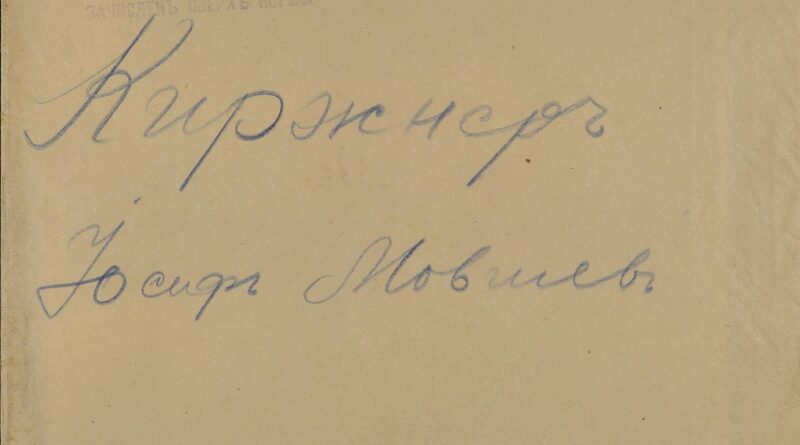 ЗАЧИСЛЕНЪ СВЕРХЪ НОРМЫ
Киржнеръ
Іосифъ Мовшевъ